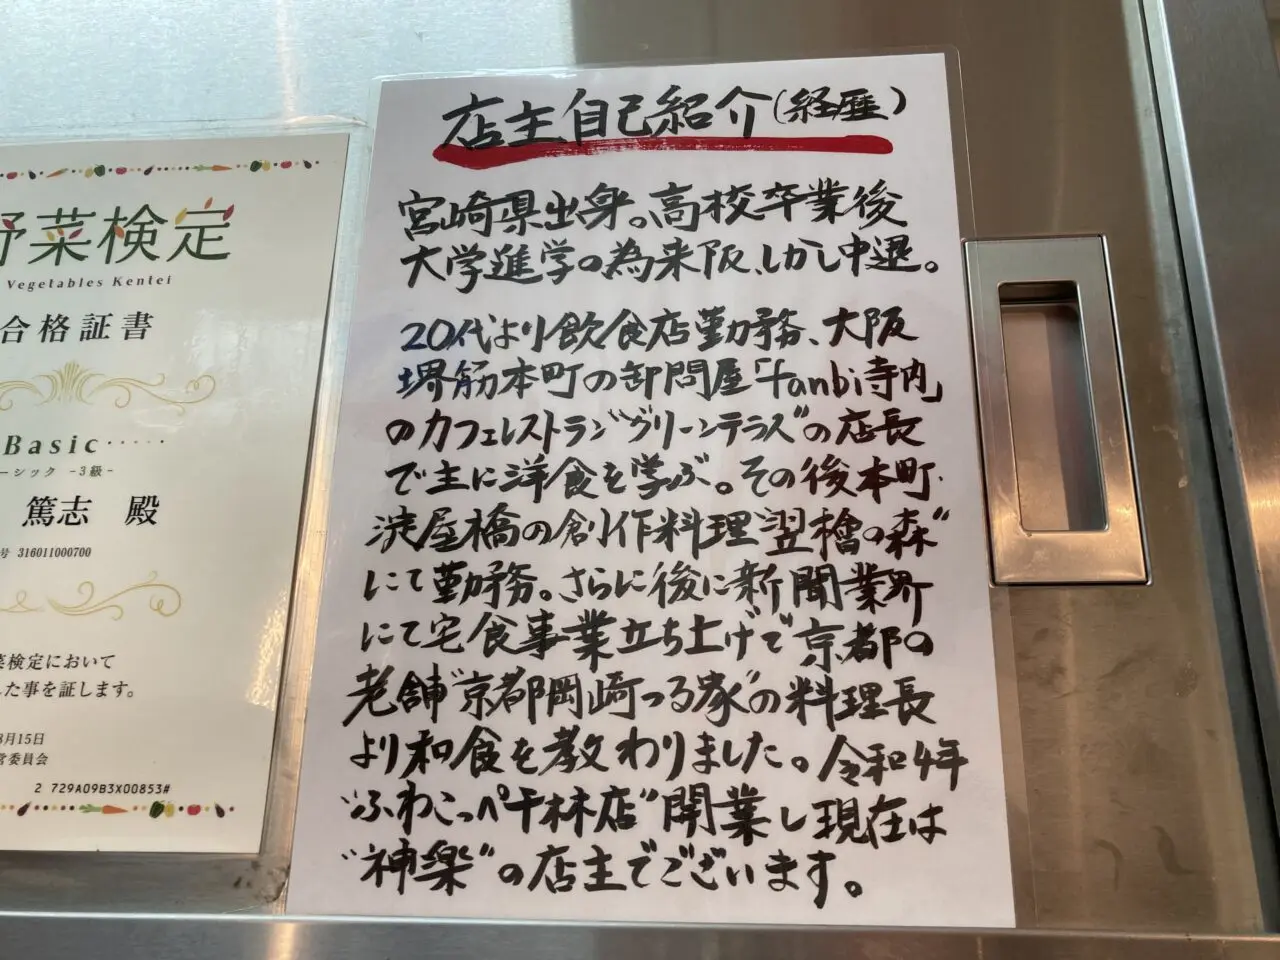 店主自己紹介(経歴)
宮崎県出身。高校卒業後
大学進学の為来阪、しかし中退。
20代より飲食店勤務、大阪
堺筋本町の卸問屋「fanbi寺内」
のカフェレストラン"グリーンテラス"の店長
で主に洋食を学ぶ。その後本町・
淀屋橋の創作料理"翌檜の森"
にて勤務。さらに後に新聞業界
にて宅食事業立ち上げで京都の
老舗"京都岡崎つる家"の料理長
より和食を教わりました。令和4年
"ふわこっぺ千林店"開業し現在は
"神楽"の店主でございます。
野菜検定
Vegetables Kentei
合格証書
Basic
ーシック -3級-
篤志 殿
号 316011000700
菜検定において
た事を証します。
3月15日
営委員会
2 729A09B3X00853#